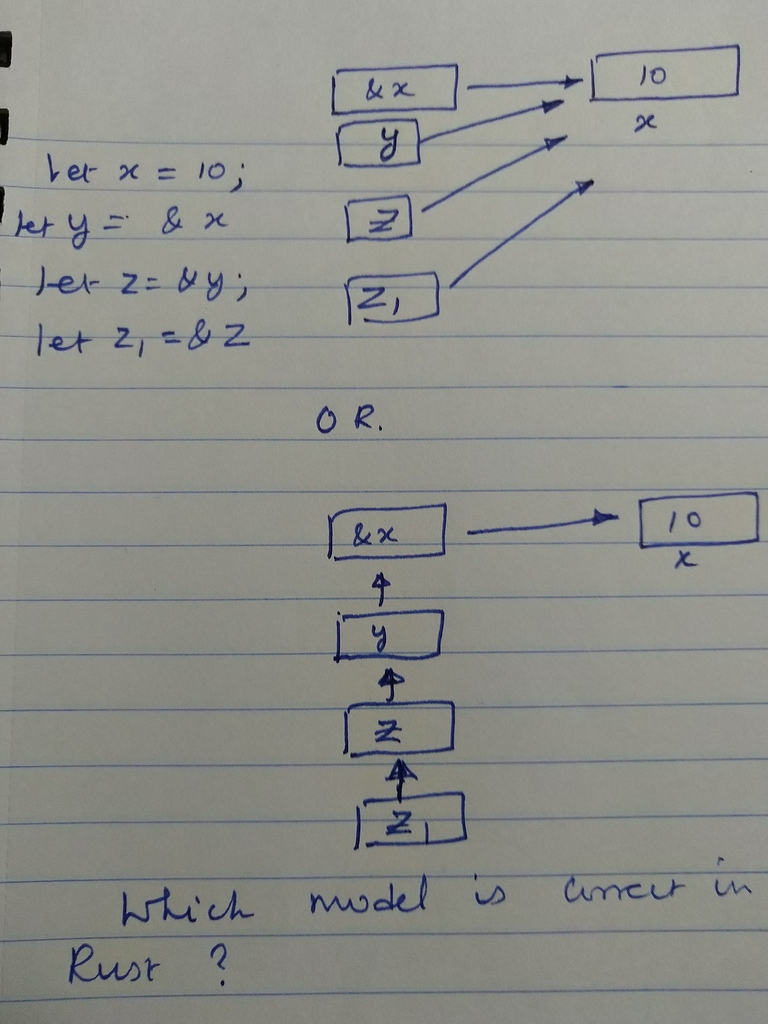 &x
10
y
x
let x = 10;
let y = & x
z
let z = &y;
z1
let z1 = & z
OR.
&x
10
x
y
z
z1
Which model is correct in
Rust ?